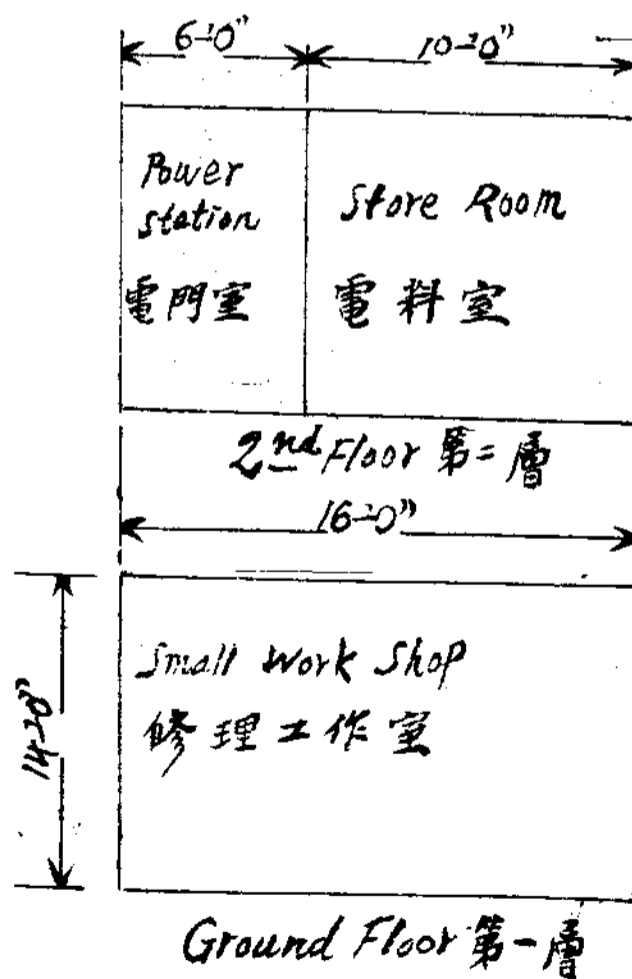 6'-0" 10'-0"
Power
station
電門室
Store Room
電料室
2nd Floor 第二層
16'-0"
14'-0"
Small Work Shop
修理工作室
Ground Floor 第一層